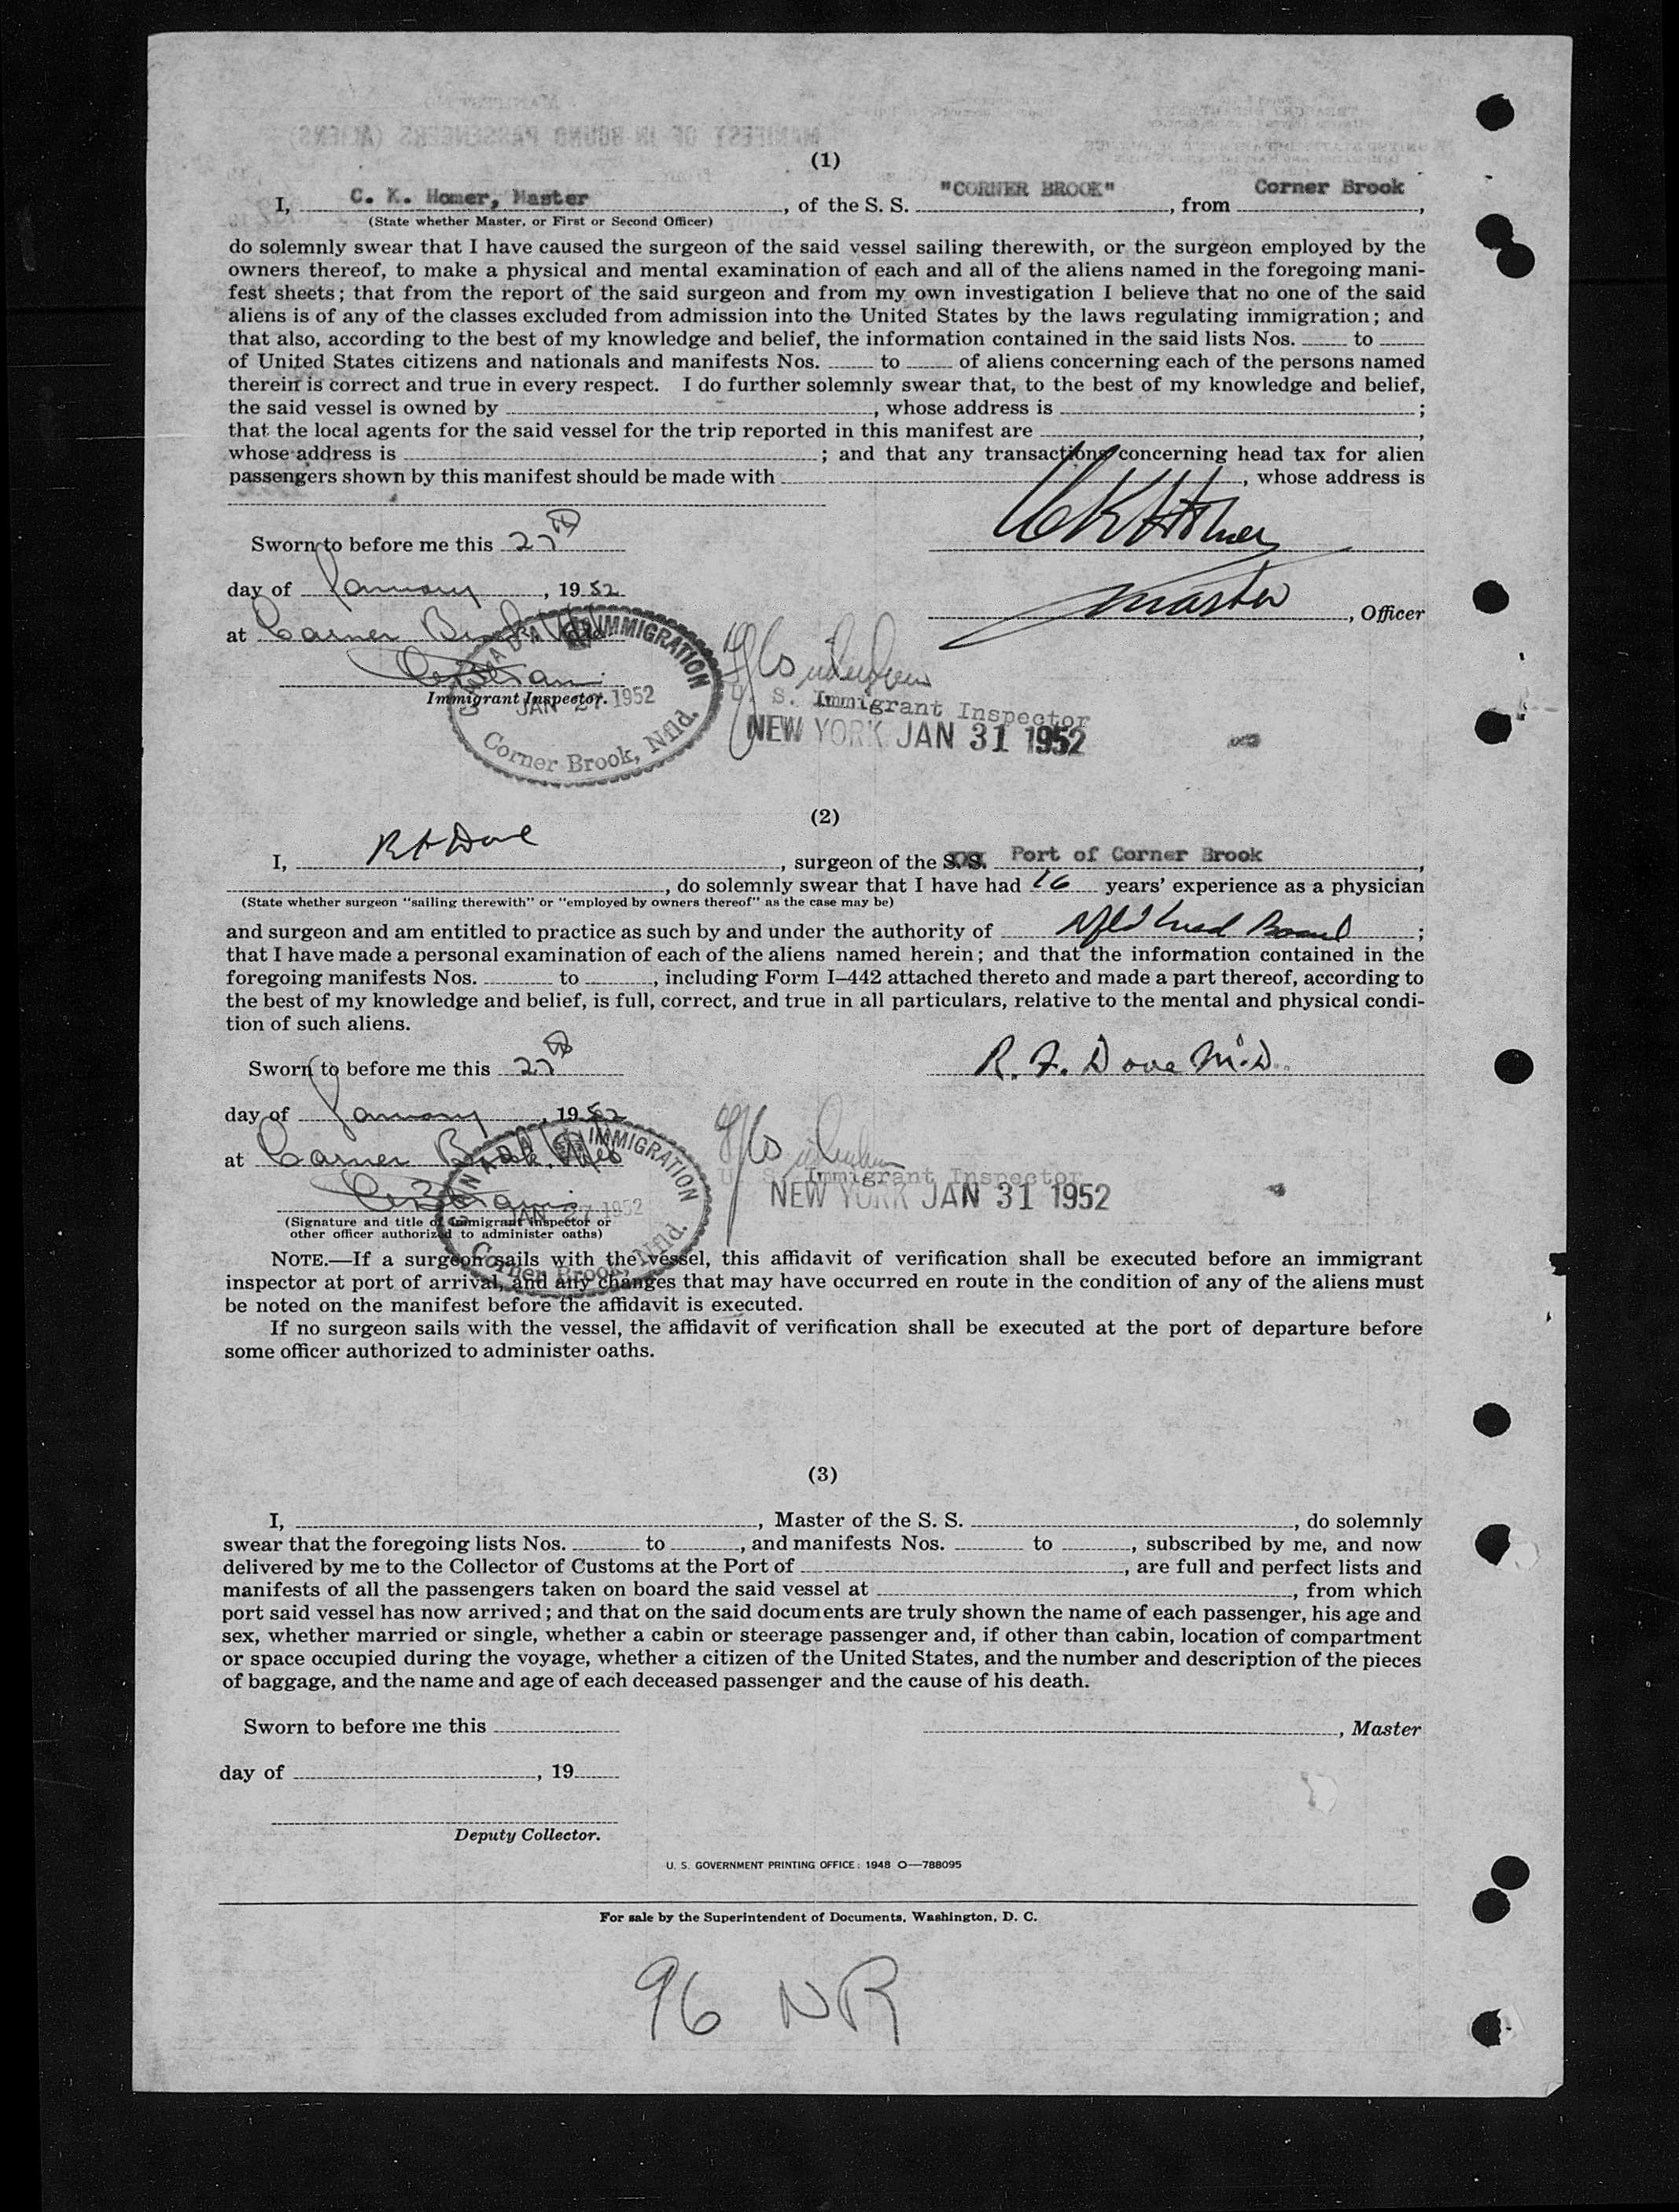 (1)
I, C. K. Homer, Master, of the S. S. "CORNER BROOK", from Corner Brook,
(State whether Master, or First or Second Officer)
do solemnly swear that I have caused the surgeon of the said vessel sailing therewith, or the surgeon employed by the
owners thereof, to make a physical and mental examination of each and all of the aliens named in the foregoing mani-
fest sheets; that from the report of the said surgeon and from my own investigation I believe that no one of the said
aliens is of any of the classes excluded from admission into the United States by the laws regulating immigration; and
that also, according to the best of my knowledge and belief, the information contained in the said lists Nos. to
of United States citizens and nationals and manifests Nos. to of aliens concerning each of the persons named
therein is correct and true in every respect. I do further solemnly swear that, to the best of my knowledge and belief,
the said vessel is owned by , whose address is ;
that the local agents for the said vessel for the trip reported in this manifest are ,
whose address is ; and that any transactions concerning head tax for alien
passengers shown by this manifest should be made with , whose address is
Sworn to before me this 27th
C K Homer
day of January, 1952
Master, Officer
at Corner Brook Nfld
CANADA IMMIGRATION
Immigrant Inspector.
JAN 27 1952
Corner Brook, Nfld.
U. S. Immigrant Inspector
NEW YORK JAN 31 1952
(2)
I, R F Dove, surgeon of the S. S. Port of Corner Brook,
, do solemnly swear that I have had 16 years' experience as a physician
(State whether surgeon "sailing therewith" or "employed by owners thereof" as the case may be)
and surgeon and am entitled to practice as such by and under the authority of Nfld Med Board;
that I have made a personal examination of each of the aliens named herein; and that the information contained in the
foregoing manifests Nos. to , including Form I-442 attached thereto and made a part thereof, according to
the best of my knowledge and belief, is full, correct, and true in all particulars, relative to the mental and physical condi-
tion of such aliens.
Sworn to before me this 27th
R. F. Dove M.D.
day of January, 1952
at Corner Brook, Nfld
CANADA IMMIGRATION
JAN 27 1952
Corner Brook, Nfld.
U. S. Immigrant Inspector
NEW YORK JAN 31 1952
(Signature and title of immigrant inspector or
other officer authorized to administer oaths)
NOTE.—If a surgeon sails with the vessel, this affidavit of verification shall be executed before an immigrant
inspector at port of arrival, and any changes that may have occurred en route in the condition of any of the aliens must
be noted on the manifest before the affidavit is executed.
If no surgeon sails with the vessel, the affidavit of verification shall be executed at the port of departure before
some officer authorized to administer oaths.
(3)
I, , Master of the S. S. , do solemnly
swear that the foregoing lists Nos. to , and manifests Nos. to , subscribed by me, and now
delivered by me to the Collector of Customs at the Port of , are full and perfect lists and
manifests of all the passengers taken on board the said vessel at , from which
port said vessel has now arrived; and that on the said documents are truly shown the name of each passenger, his age and
sex, whether married or single, whether a cabin or steerage passenger and, if other than cabin, location of compartment
or space occupied during the voyage, whether a citizen of the United States, and the number and description of the pieces
of baggage, and the name and age of each deceased passenger and the cause of his death.
Sworn to before me this
, Master
day of , 19
Deputy Collector.
U. S. GOVERNMENT PRINTING OFFICE: 1948 O—788095
For sale by the Superintendent of Documents, Washington, D. C.
96 NR